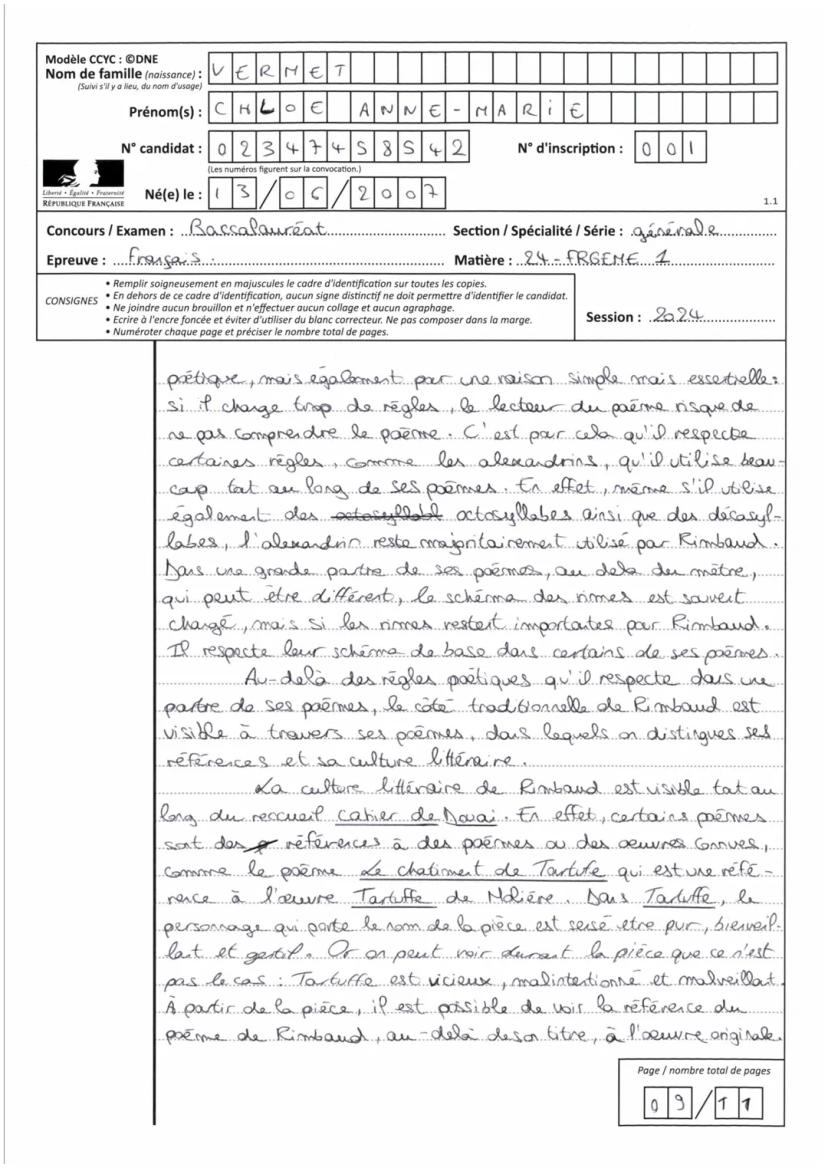 Modèle CCYC : ©DNE
Nom de famille (naissance) : VERMET
(Suivi s'il y a lieu, du nom d'usage)
Prénom(s) : CHLOE ANNE-MARiE
N° candidat : 02347458542 N° d'inscription : 001
(Les numéros figurent sur la convocation.)
Liberté • Égalité • Fraternité
RÉPUBLIQUE FRANÇAISE
Né(e) le : 13/06/2007
1.1
Concours / Examen : Baccalauréat Section / Spécialité / Série : générale
Epreuve : Français. Matière : 24-FRGEME 1
CONSIGNES
• Remplir soigneusement en majuscules le cadre d'identification sur toutes les copies.
• En dehors de ce cadre d'identification, aucun signe distinctif ne doit permettre d'identifier le candidat.
• Ne joindre aucun brouillon et n'effectuer aucun collage et aucun agraphage.
• Ecrire à l'encre foncée et éviter d'utiliser du blanc correcteur. Ne pas composer dans la marge.
• Numéroter chaque page et préciser le nombre total de pages.
Session : 2024
poétique, mais également par une raison simple mais essentielle :
si il change trop de règles, le lecteur du poème risque de
ne pas comprendre le poème. C'est pour cela qu'il respecte
certaines règles, comme les alexandrins, qu'il utilise beau-
coup tout au long de ses poèmes. En effet, même s'il utilise
également des octosyllabl octosyllabes ainsi que des décasyl-
labes, l'alexandrin reste majoritairement utilisé par Rimbaud.
Dans une grande partie de ses poèmes, au delà du mètre,
qui peut être différent, le schéma des rimes est souvent
changé, mais si les rimes restent importantes pour Rimbaud.
Il respecte leur schéma de base dans certains de ses poèmes.
Au-delà des règles poétiques qu'il respecte dans une
partie de ses poèmes, le côté traditionnelle de Rimbaud est
visible à travers ses poèmes, dans lequels on distingues ses
références et sa culture littéraire.
La culture littéraire de Rimbaud est visible tout au
long du reccueil Cahier de Douai. En effet, certains poèmes
sont des références à des poèmes ou des oeuvres connues,
comme le poème Le chatiment de Tartufe qui est une réfé-
rence à l'œuvre Tartuffe de Molière. Dans Tartuffe, le
personnage qui porte le nom de la pièce est sensé etre pur, bienveil-
lant et gentil. Or on peut voir durant la pièce que ce n'est
pas le cas : Tartuffe est vicieux, malintentionné et malveillant.
À partir de la pièce, il est possible de voir la référence du
poème de Rimbaud, au-delà de son titre, à l'oeuvre originale.
Page / nombre total de pages
09/11